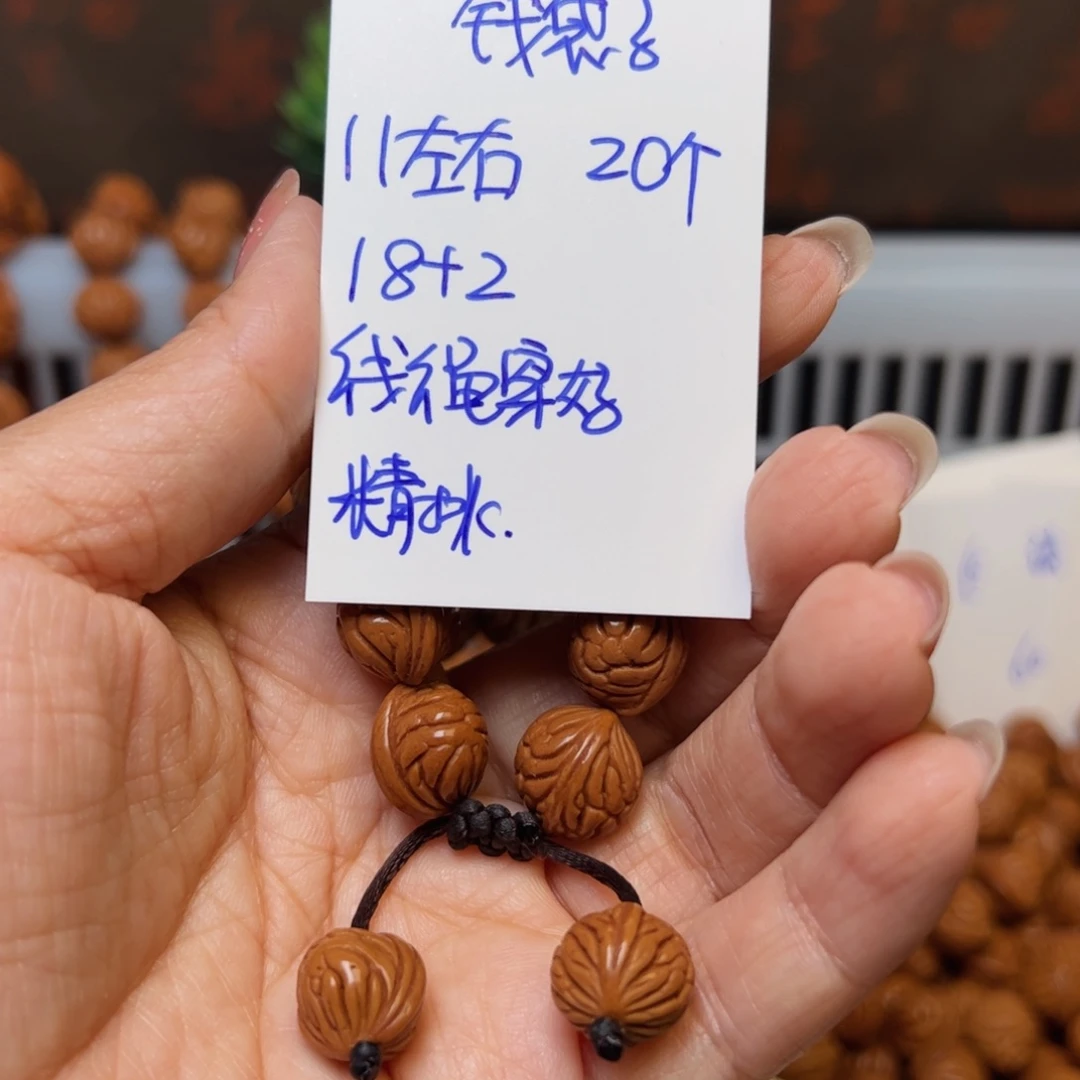 钱袋子
11左右 20个
18+2
线绳穿好
精挑.